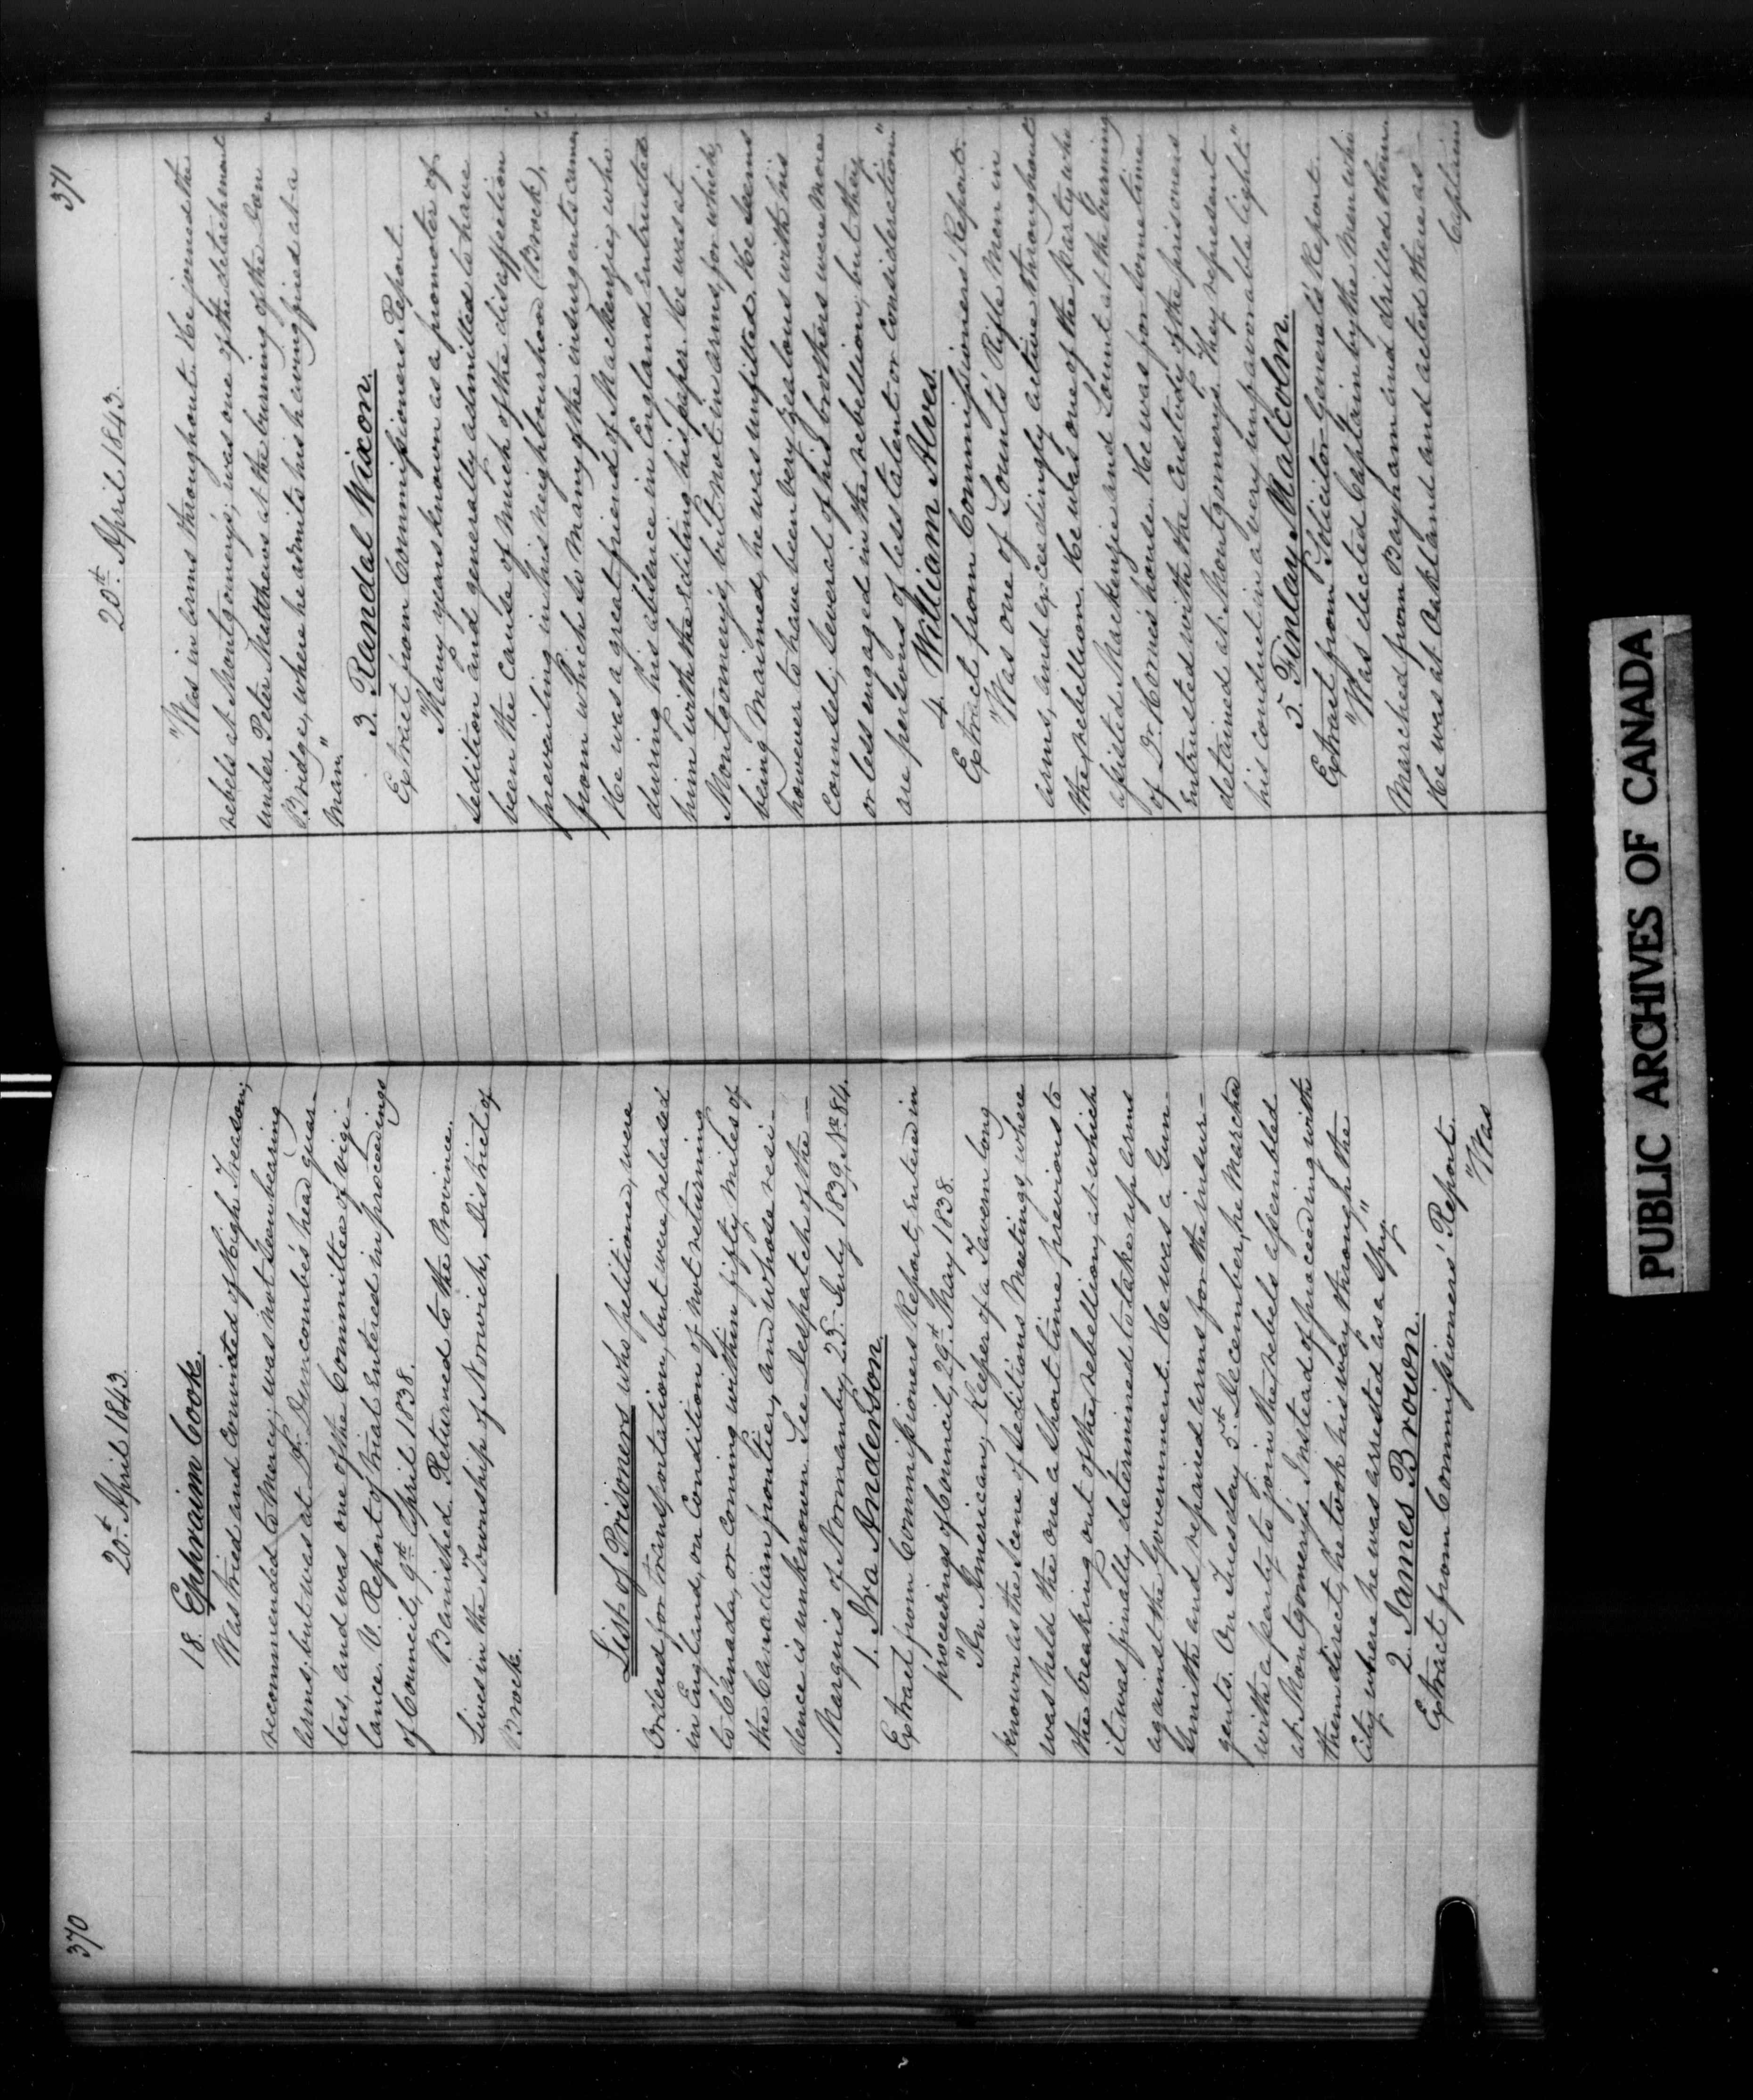 370
20th April 1843.
18. Ephraim Cook.
Was tried and convicted of High Treason;
recommended to Mercy; was not seen bearing
arms, but was at Dr. Duncombe's head quar-
ters, and was one of the Committee of vigi-
lance. V. Report of trial entered in proceedings
of Council, 9th April 1838.
Banished. Returned to the Province.
Lives in the Township of Norwich, District of
Brock.
List of Prisoners who petitioned, were
ordered for transportation, but were released
in England, on condition of not returning
to Canada, or coming within fifty miles of
the Canadian frontier, and whose resi-
dence is unknown. See Despatch of the
Marquis of Normanby, 25. July 1839, No. 84.
1. Ira Anderson.
Extract from Commissioners Report, entered in
proceedings of Council, 29th May 1838.
"An American; Keeper of a Tavern long
known as the scene of seditious Meetings, where
was held the one a short time previous to
the breaking out of the rebellion, at which
it was finally determined to take up arms
against the Government. He was a Gun-
Smith and repaired arms for the insur-
gents. On Tuesday 5th December, he Marched
with a party to join the rebels assembled
at Montgomery's. Instead of proceeding with
them direct, he took his way through the
City where he was arrested as a Spy."
2. James Brown.
Extract from Commissioners' Report.
"Was
371
20th April 1843.
"Was in arms throughout. He joined the
rebels at Montgomery's; was one of the detachment
under Peter Matthews at the burning of the Don
Bridge, where he admits his having fired at a
man."
3. Randal Wixon.
Extract from Commissioners Report.
"Many years known as a promoter of
sedition and generally admitted to have
been the cause of much of the disaffection
prevailing in his neighbourhood (Brock),
from which so many of the insurgents came.
He was a great friend of Mackenzie, who
during his absence in England entrusted
him with the editing his paper. He was at
Montgomery's, but not in arms, for which,
being maimed, he was unfitted. He seems
however to have been very zealous with his
counsel; several of his brothers were more
or less engaged in the rebellion, but they
are persons of less talent or consideration"
4. William Alves.
Extract from Commissioners' Report.
"Was one of Lount's Rifle Men in
arms, and exceedingly active throughout
the rebellion. He was one of the party who
assisted Mackenzie and Lount at the burning
of Dr. Horne's house. He was for some time
entrusted with the custody of the prisoners
detained at Montgomery's. They represent
his conduct in a very unfavorable light."
5. Finlay Malcolm.
Extract from Solicitor General's Report.
"Was elected Captain by the Men who
Marched from Bayham and drilled them.
He was at Oakland and acted there as
Captain
PUBLIC ARCHIVES OF CANADA